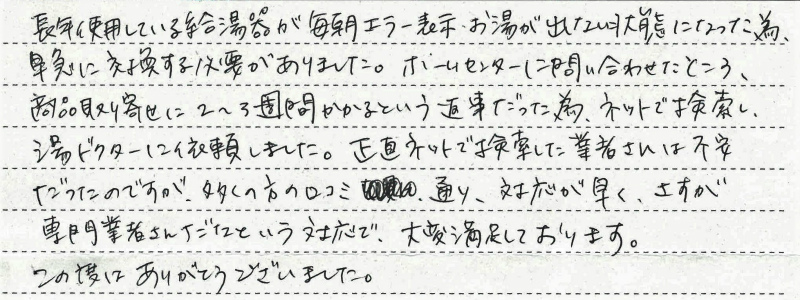 長年使用している給湯器が毎朝エラー表示・お湯が出ない状態になった為、
早急に交換する必要がありました。ホームセンターに問い合わせたところ、
商品取り寄せに2〜3週間かかるという返事だった為、ネットで検索し、
湯ドクターに依頼しました。正直ネットで検索した業者さんは不安
だったのですが、多くの方の口コミ 通り、対応が早く、さすが
専門業者さんだなという対応で、大変満足しております。
この度は ありがとうございました。